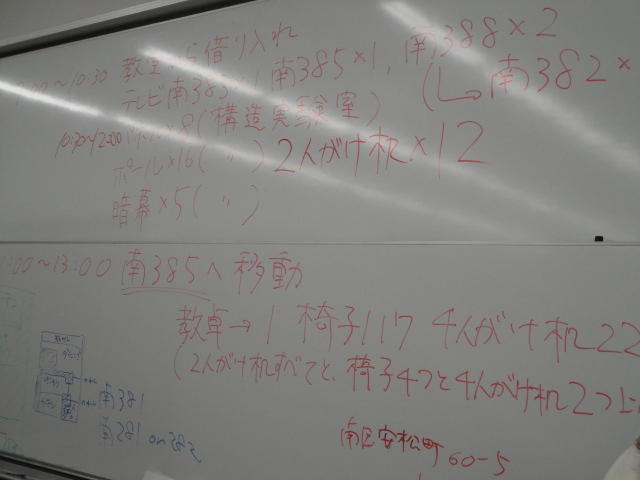 ~10:30 教室から借り入れ
テレビ 南385×1 南385×1, 南388×2
(↳南382×
10:30~12:00 ×8 (構造実験室)
ポール×16 ( 〃 ) 2人がけ机×12
暗幕×5 ( 〃 )
:00~13:00 南385へ移動
教卓→1 椅子117 4人がけ机22
(2人がけ机すべてと、椅子4つと4人がけ机2つ
南381
南281 or 382
南区安松町60-5